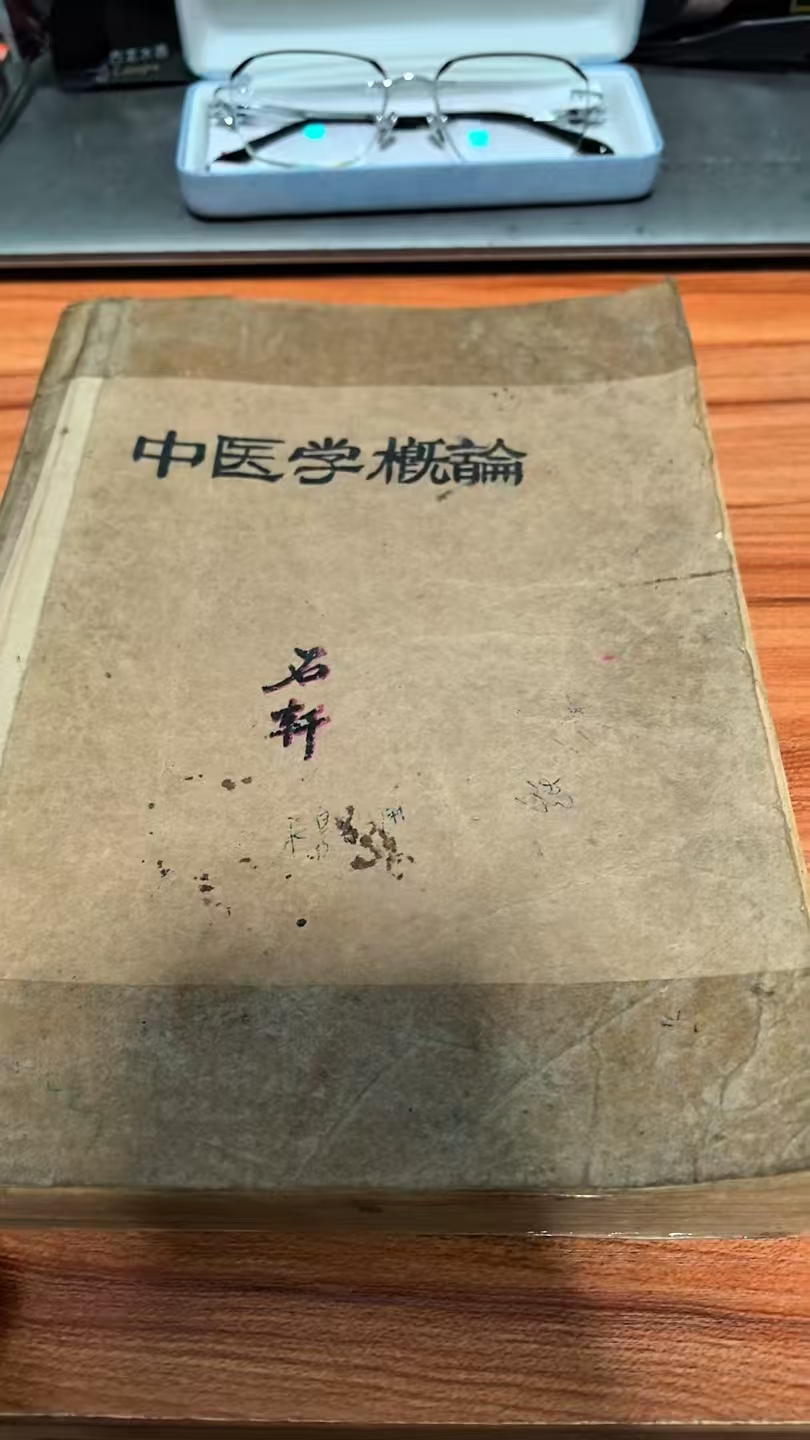 中医学概論
石
轩